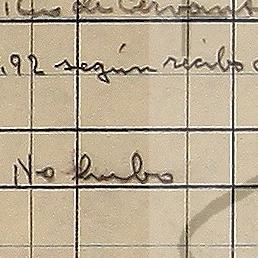 de Cervant
.92 según recibo
No hubo